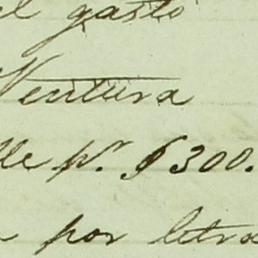 el gasto
Ventura
lle pr. $300.
por letra